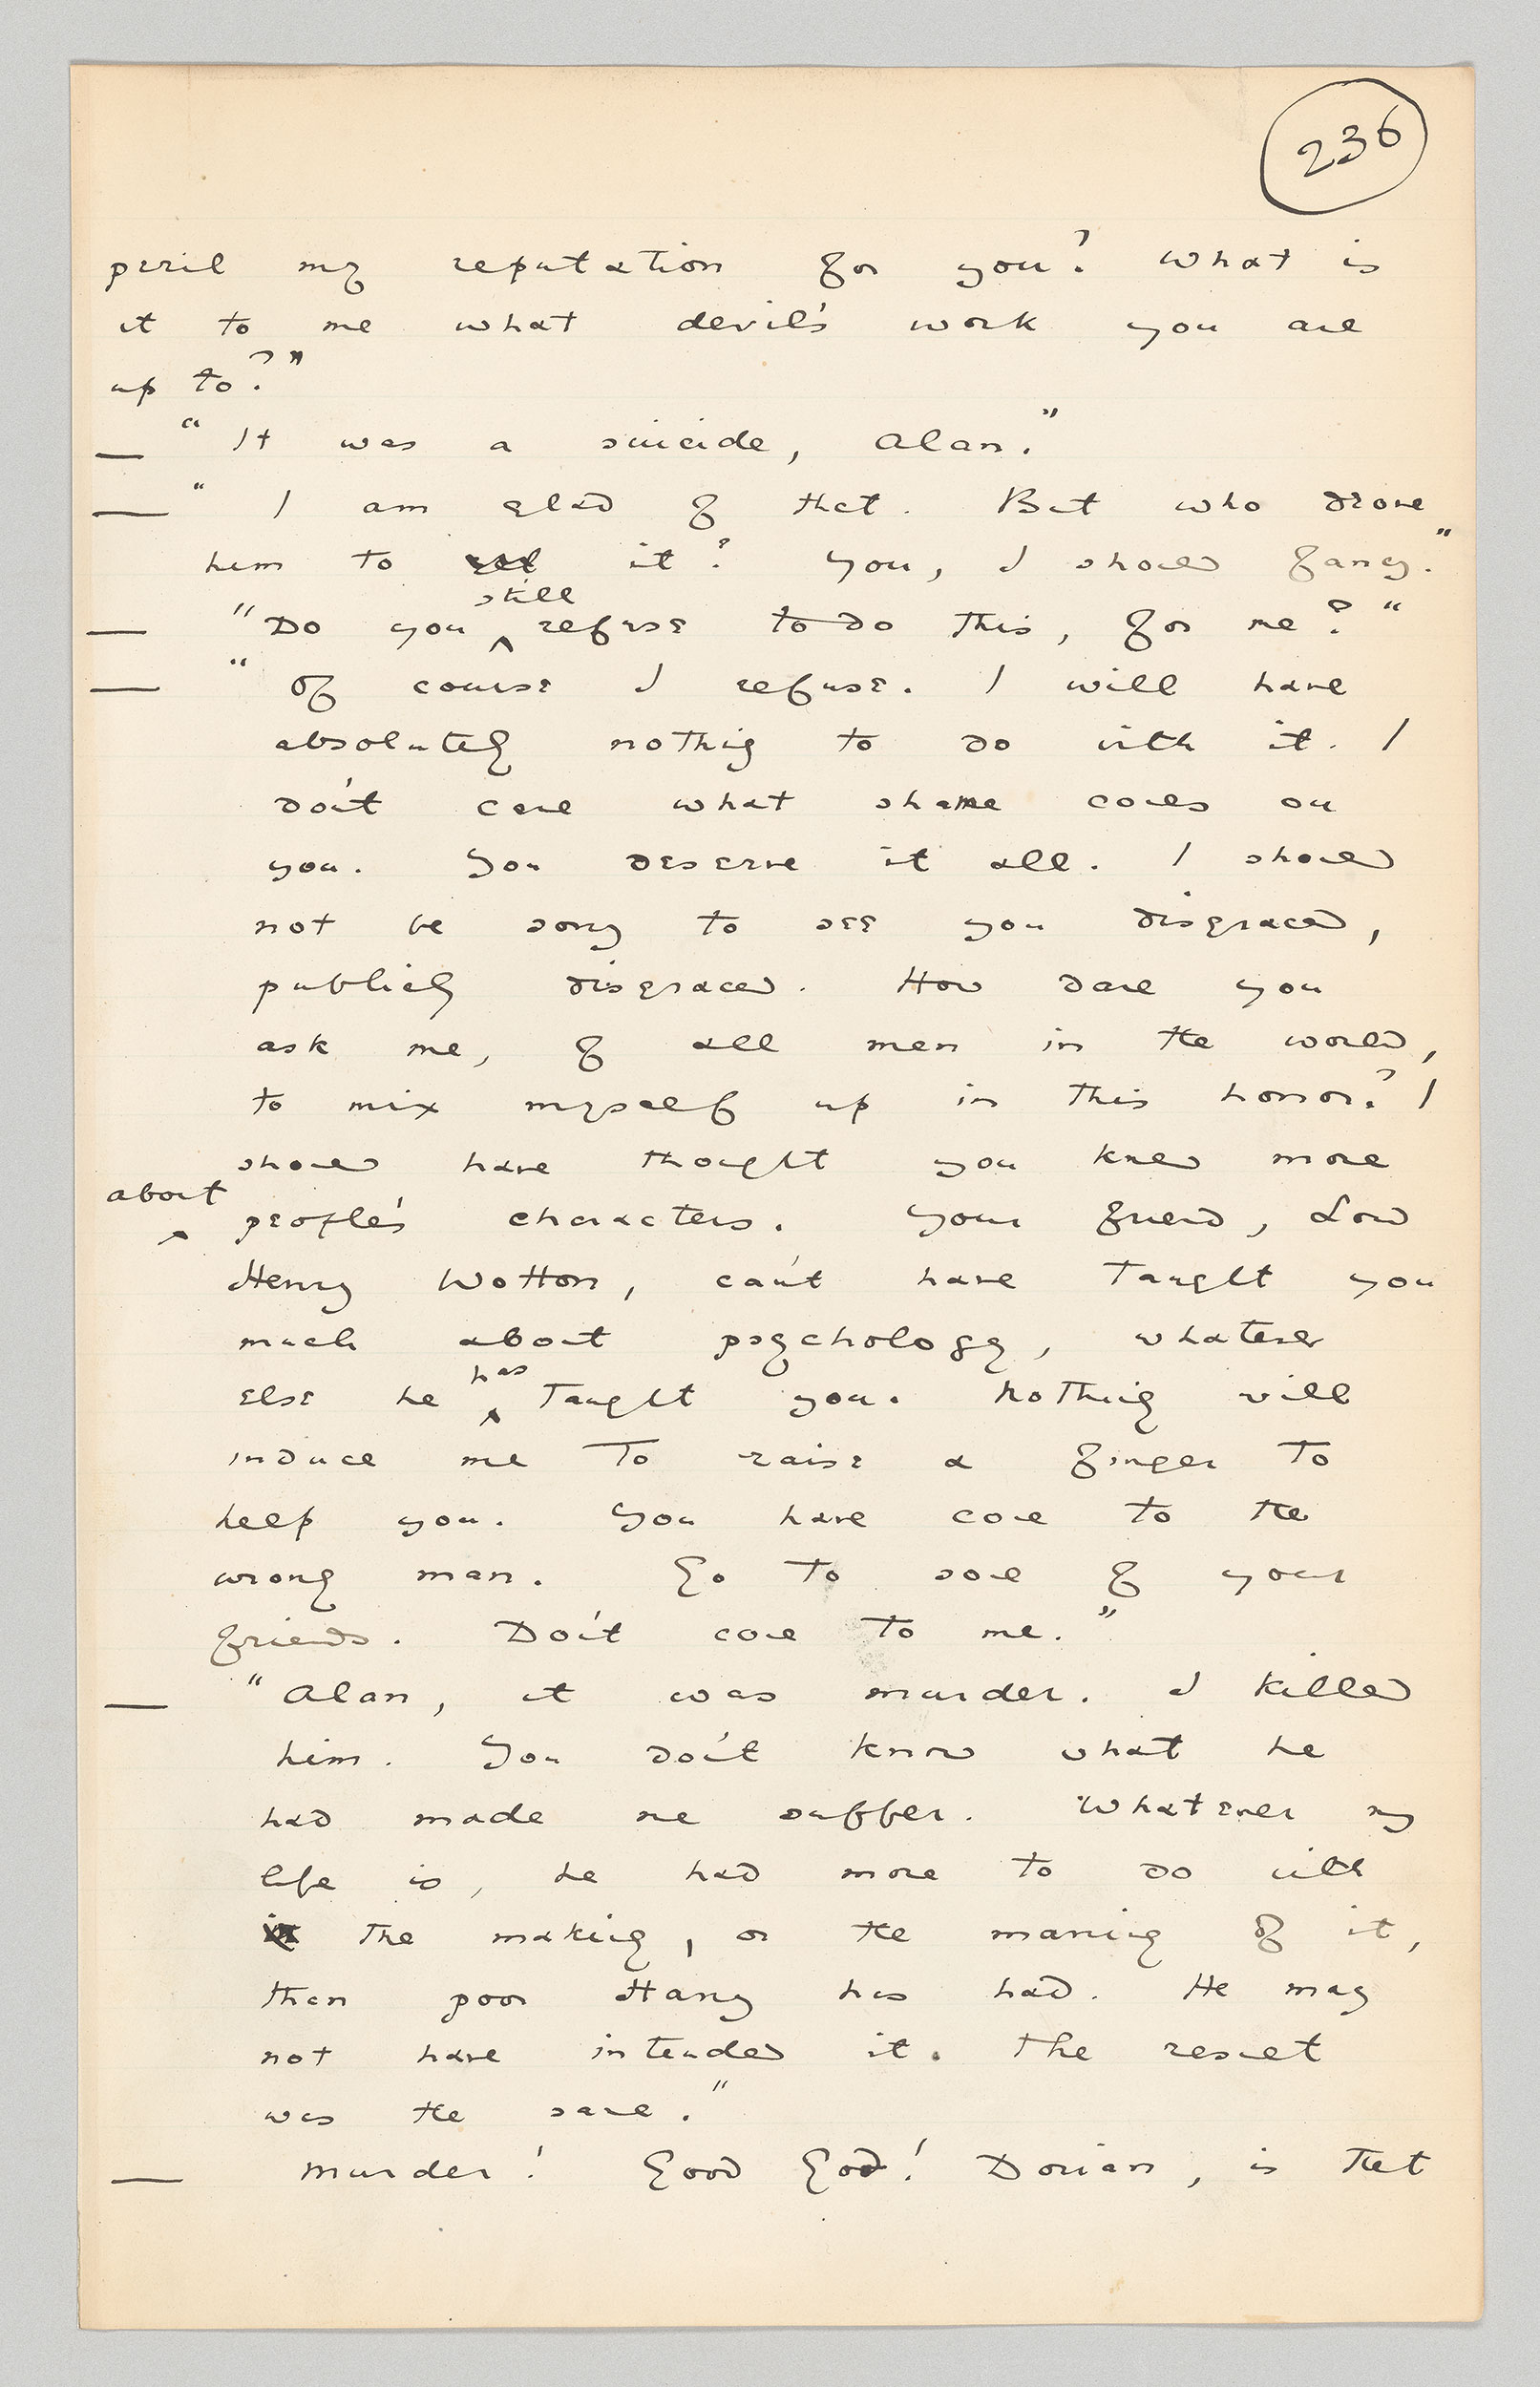 236
peril my reputation for you? What is
it to me what devil's work you are
up to?"
— "It was a suicide, Alan."
— "I am glad of that. But who drove
him to it? You, I should fancy."
still
— "Do you ^ refuse to do this, for me?"
— "Of course I refuse. I will have
absolutely nothing to do with it. I
don't care what shame comes on
you. You deserve it all. I should
not be sorry to see you disgraced,
publicly disgraced. How dare you
ask me, of all men in the world,
to mix myself up in this horror? I
should have thought you knew more
about
^ people's characters. Your friend, Lord
Henry Wotton, can't have taught you
much about psychology, whatever
has
else he ^ taught you. Nothing will
induce me to raise a finger to
help you. You have come to the
wrong man. Go to some of your
friends. Don't come to me."
— "Alan, it was murder. I killed
him. You don't know what he
had made me suffer. Whatever my
life is, he had more to do with
the making, or the marring of it,
than poor Harry has had. He may
not have intended it. The result
was the same."
— Murder! Good God! Dorian, is that